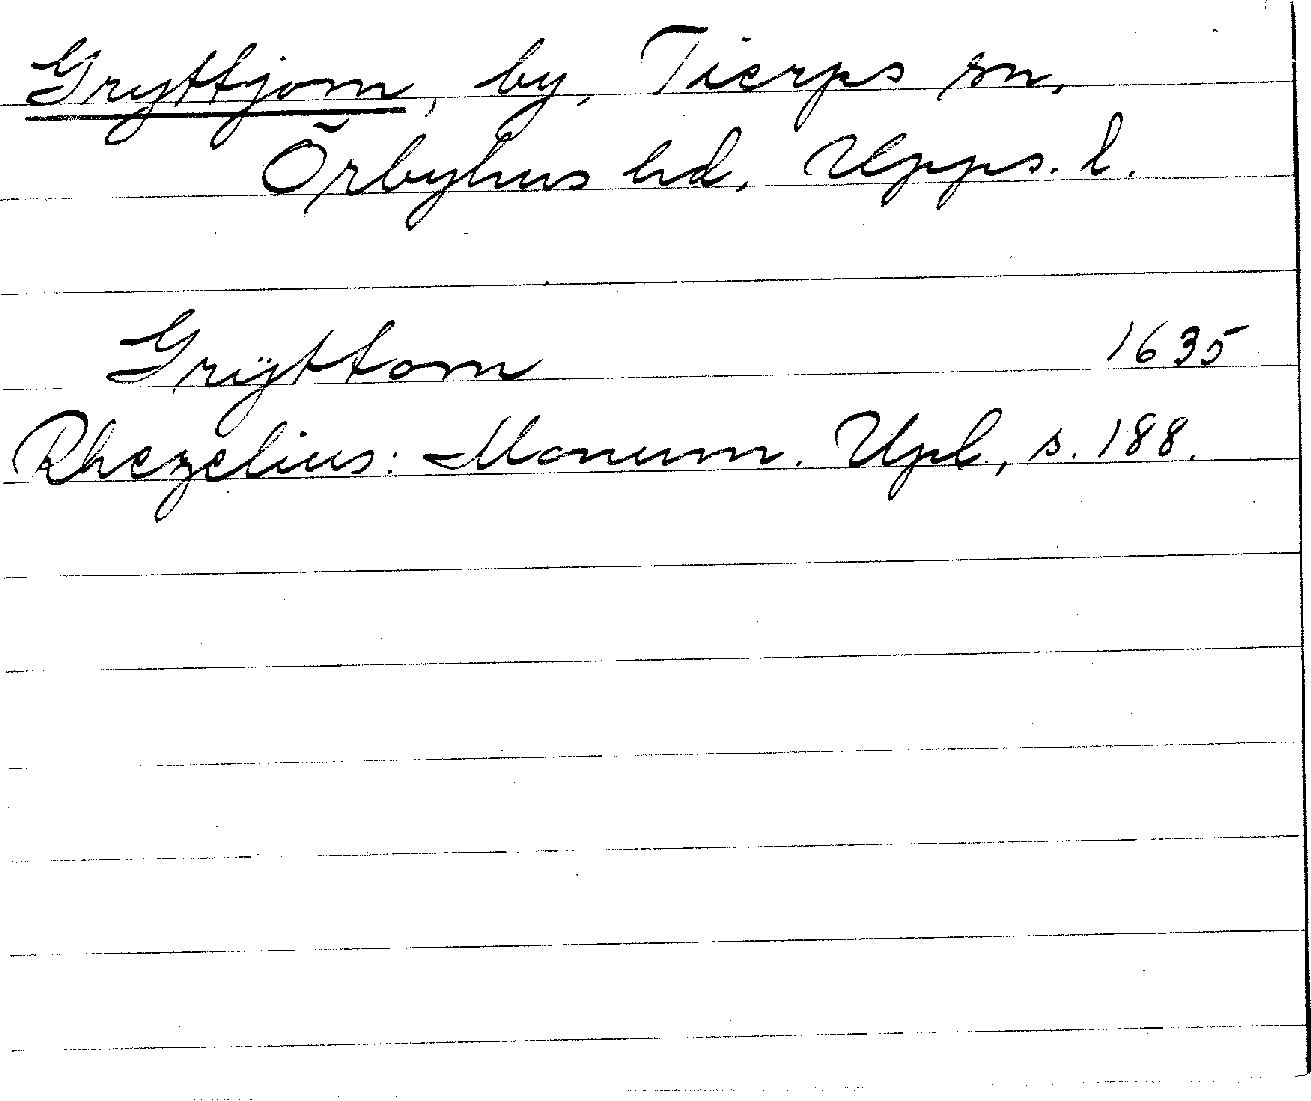 Gryttjom, by, Tierps sn,
Örbyhus hd, Upps. l.
Grÿttom 1635
Rhezelius: Monum. Upl., s. 188.